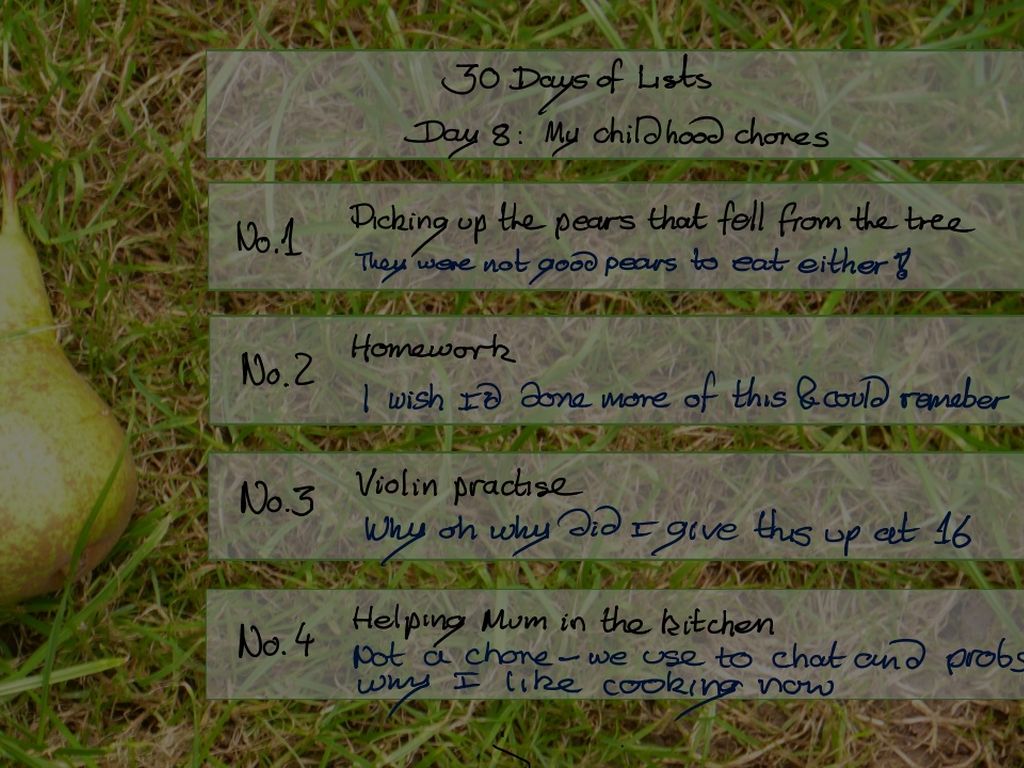 30 Days of Lists
Day 8: My childhood chores
No.1
Picking up the pears that fell from the tree
They were not good pears to eat either!
No.2
Homework
I wish I'd done more of this & could remeber
No.3
Violin practise
Why oh why did I give this up at 16
No.4
Helping Mum in the kitchen
Not a chore - we use to chat and probs
why I like cooking now